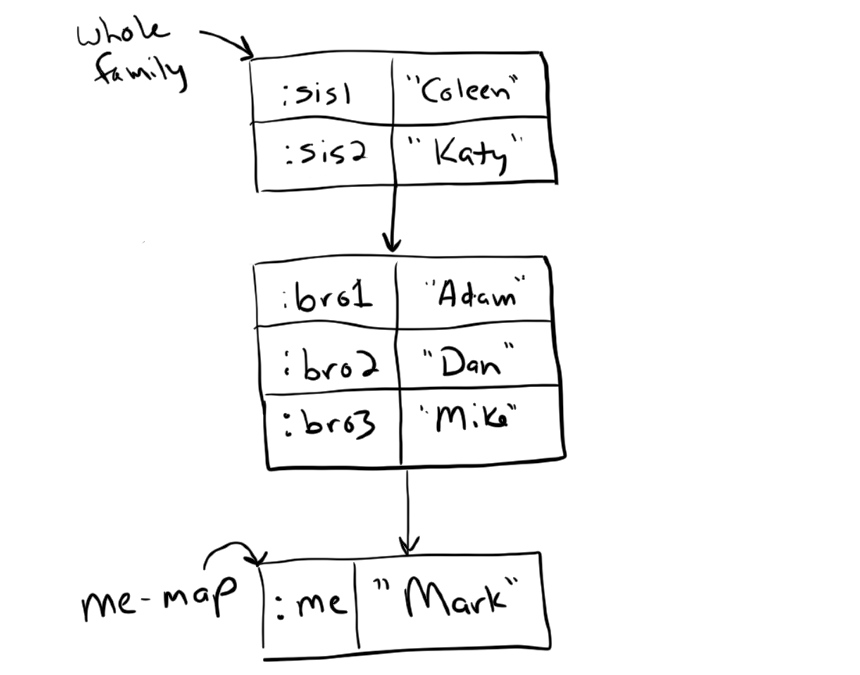 whole
family
:sis1 "Coleen"
:sis2 "Katy"
:bro1 "Adam"
:bro2 "Dan"
:bro3 "Mike"
me-map :me "Mark"